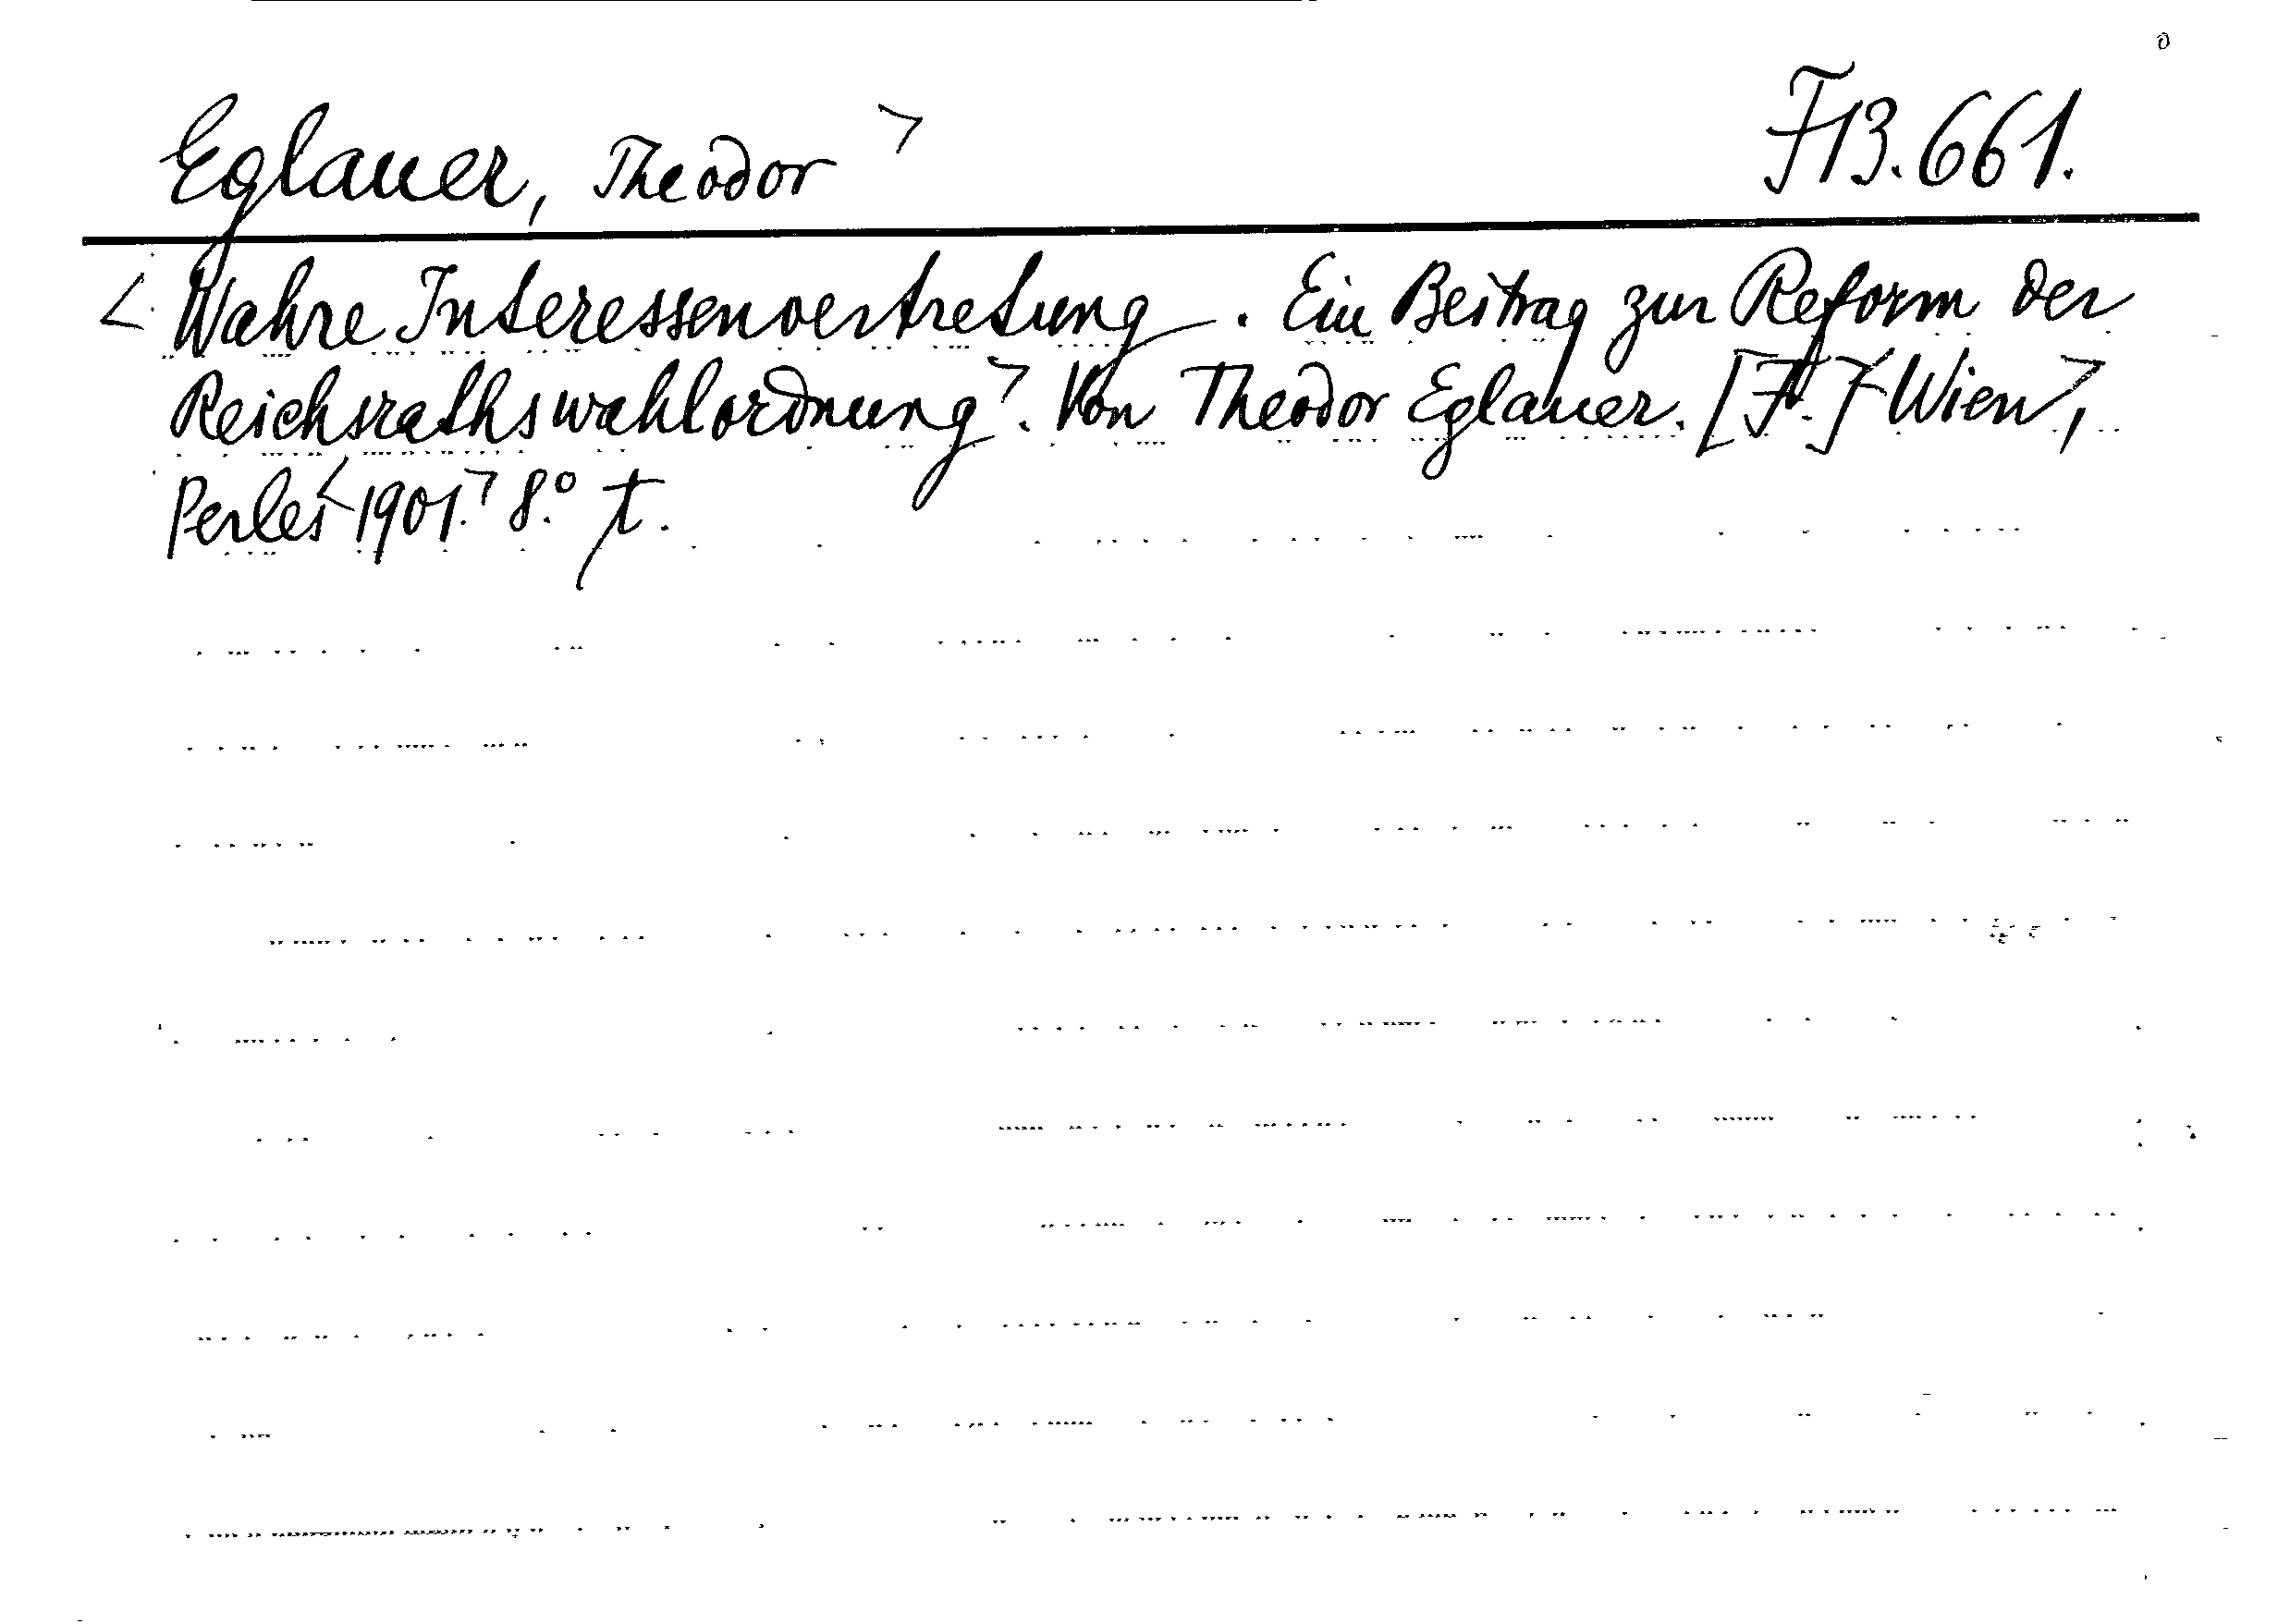 Eglauer, Theodor > F13.661.
< Wahre Interessenvertretung. Ein Beitrag zur Reform der
Reichsrathswahlordnung>. Von Theodor Eglauer. [F.] < Wien>,
Perles <1901.> 8.° t.